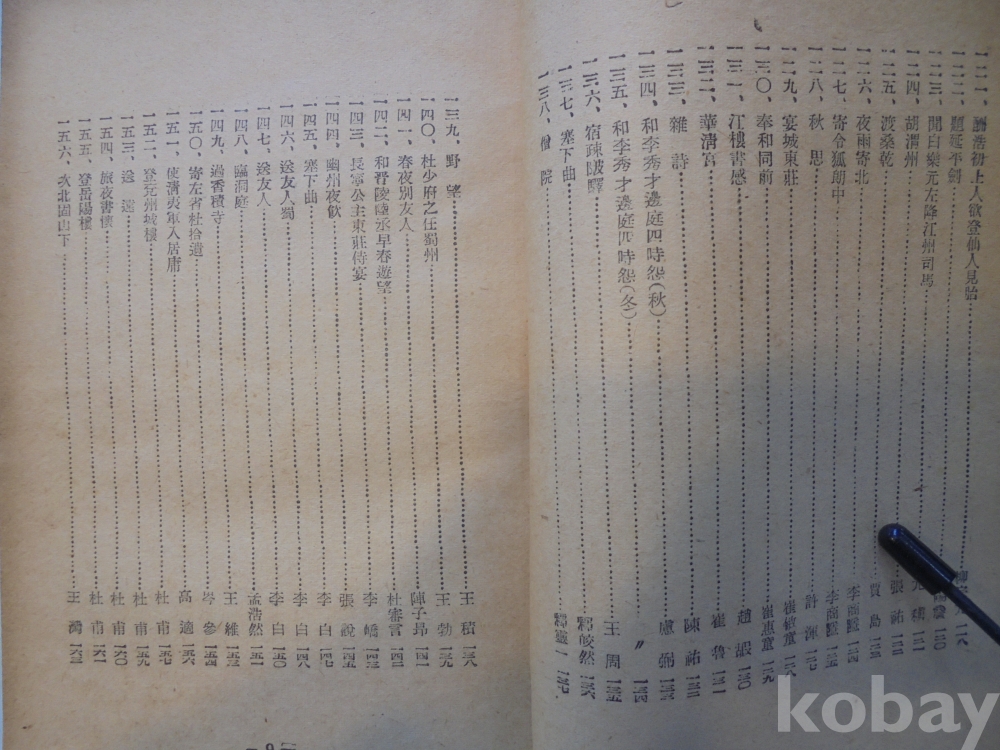 一二一、酬浩初上人欲登仙人見貽
一二二、題延平劍
一二三、聞白樂元左降江州司馬
一二四、胡渭州 張祜
一二五、渡桑乾 賈島
一二六、夜雨寄北 李商隱
一二七、寄令狐郎中 李商隱
一二八、秋思 許渾
一二九、宴城東莊 崔敏童
一三〇、奉和同前 崔惠童 一二九
一三一、江樓書感 趙嘏 一三〇
一三二、華清宮 崔魯 一三一
一三三、雜詩 陳祐 一三二
一三四、和李秀才邊庭四時怨(秋) 盧弼 一三三
一三五、和李秀才邊庭四時怨(冬) 〃 一三四
一三六、宿疎陂驛 王周 一三五
一三七、塞下曲 釋皎然 一三六
一三八、僧院 釋靈一 一三七
一三九、野望 王積 一三八
一四〇、杜少府之任蜀州 王勃 一三九
一四一、春夜別友人 陳子昂 一四一
一四二、和晋陵陸丞早春遊望 杜審言 一四二
一四三、長寧公主東莊侍宴 李嶠 一四三
一四四、幽州夜歌 張說 一四五
一四五、塞下曲 李白 一四七
一四六、送友人入蜀 李白 一四八
一四七、送友人 李白 一五〇
一四八、臨洞庭 孟浩然 一五一
一四九、過香積寺 王維
一五〇、寄左省杜拾遺 岑參 一五四
一五一、使清夷軍入居庸 高適
一五二、登兗州城樓 杜甫 一五七
一五三、送遠 杜甫 一五九
一五四、旅夜書懷 杜甫 一六〇
一五五、登岳陽樓 杜甫
一五六、次北固山下 王灣 一六三
kobay